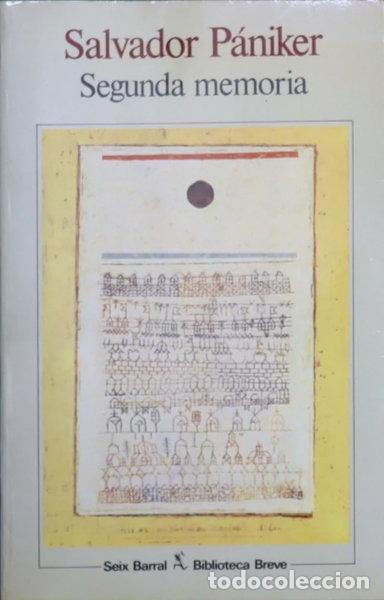 Salvador Pániker
Segunda memoria
Seix Barral Biblioteca Breve
todocoleccion.net
todocoleccion